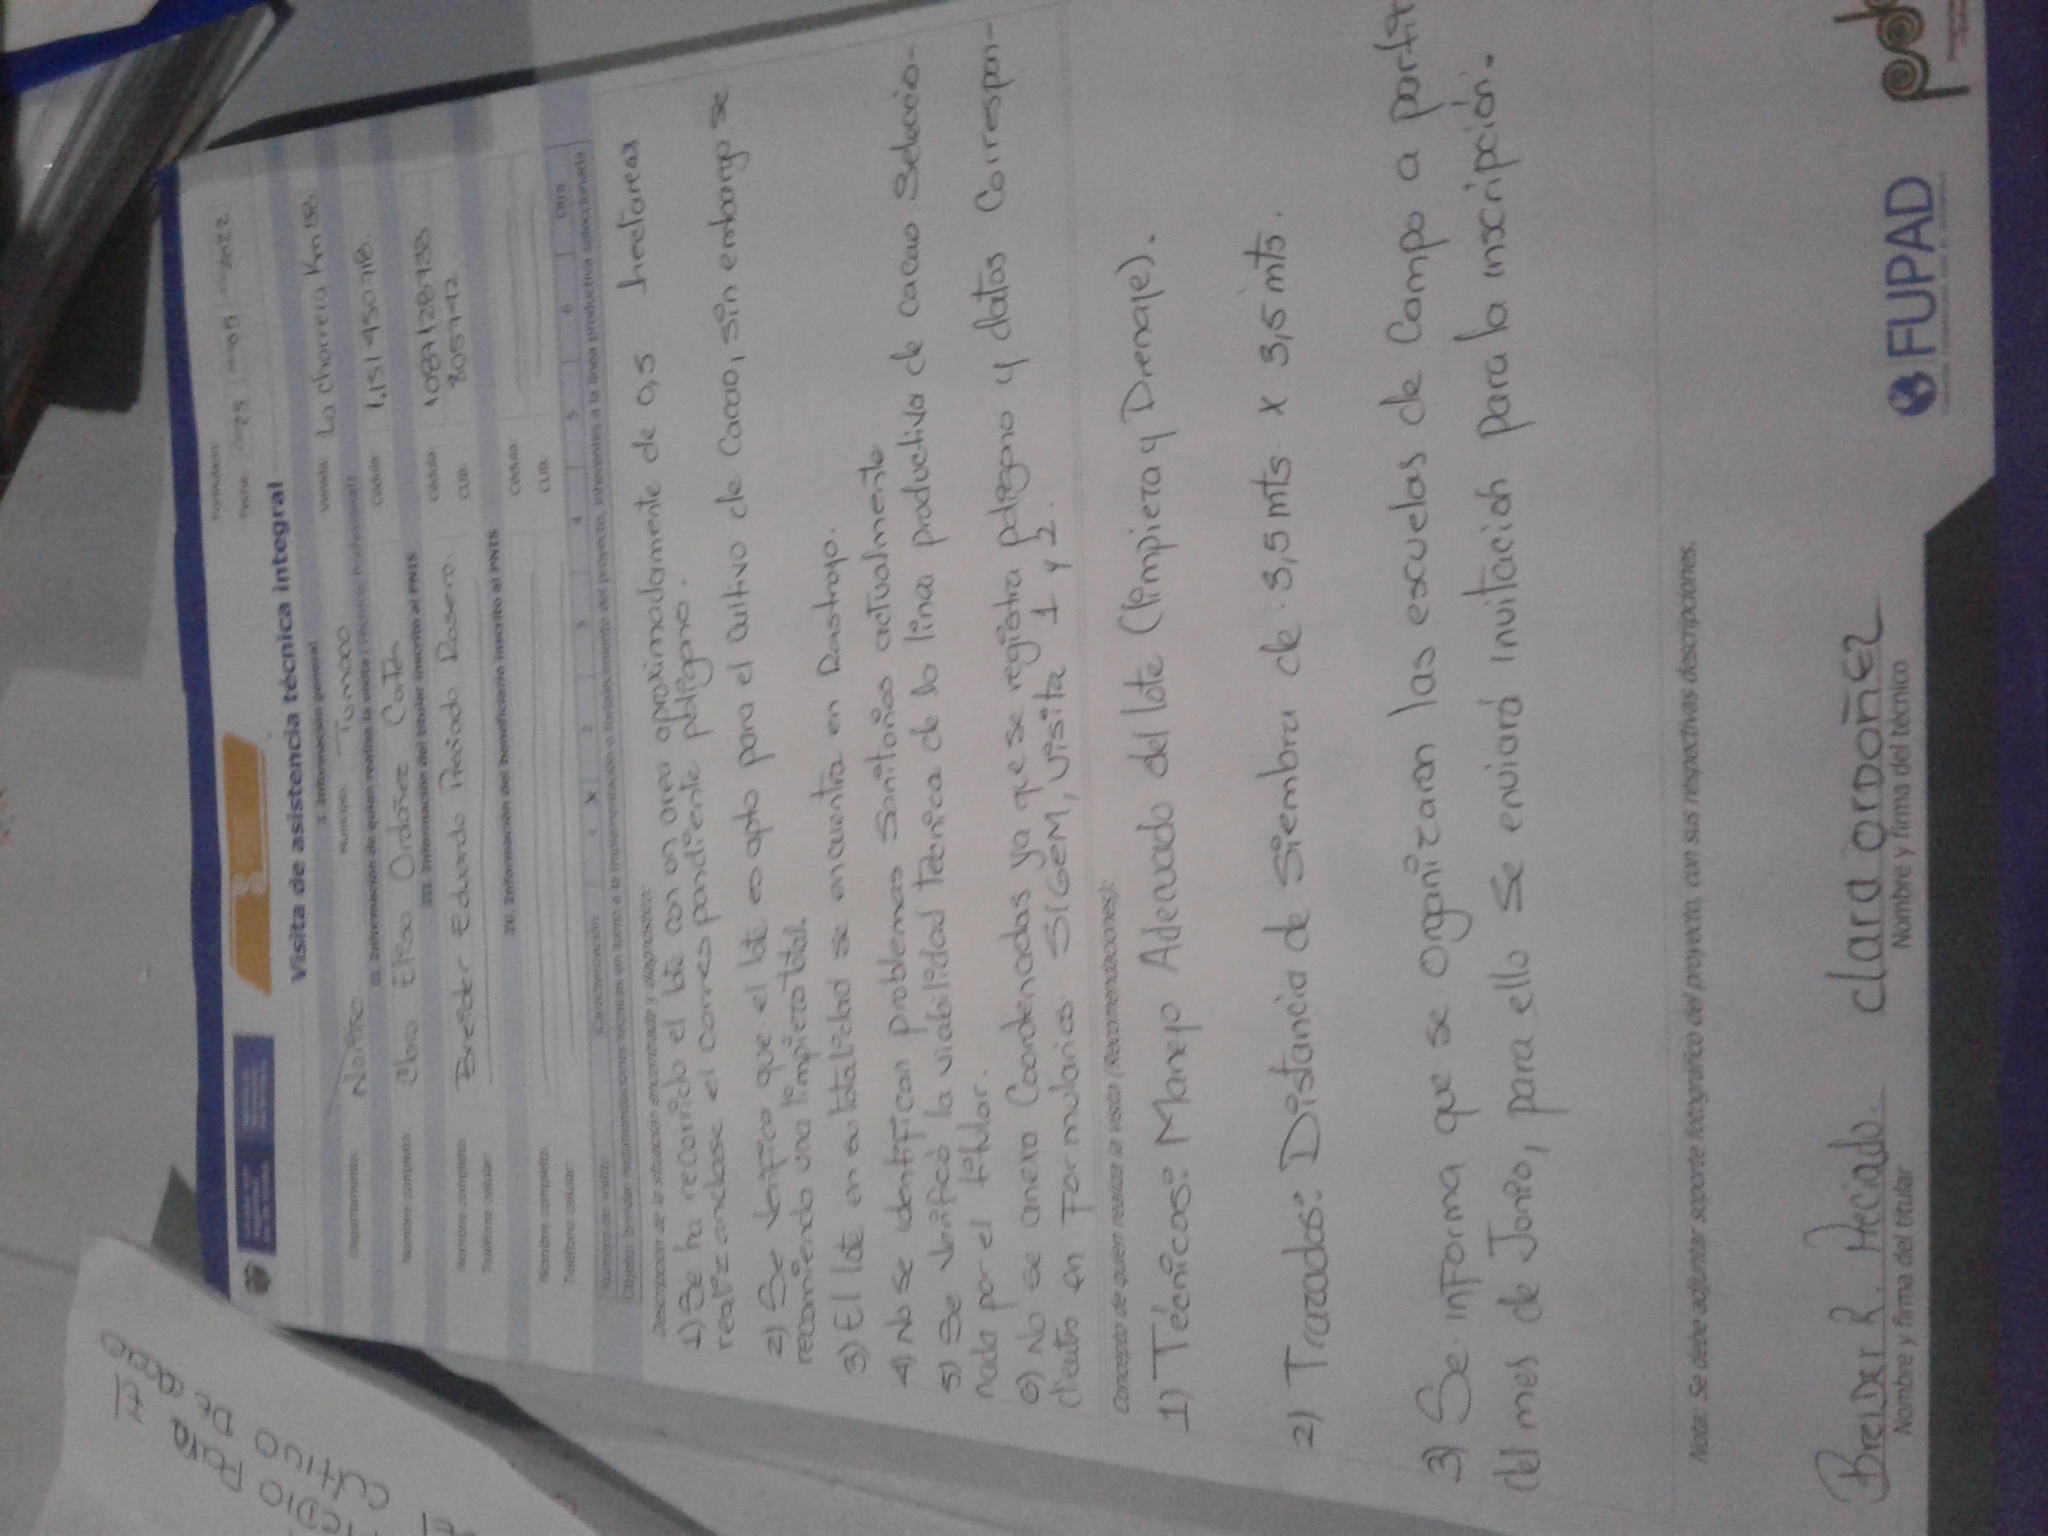 Formulario:
Fecha: 2022
Visita de asistencia técnica integral
I. Información general
Departamento: Nariño Municipio: Tumaco Vereda: La Chorrera Km
II. Información de quien realiza la visita (técnico/profesional)
Nombre completo: Clara Elisa Ordoñez Cortes Cédula 1.151 950718.
III. Información del titular inscrito al PNIS
Nombre completo: Breider Eduardo Preciado Rosero. Cédula 1087128733
Teléfono celular: CUB:
IV. Información del beneficiario inscrito al PNIS
Nombre completo: Cédula:
Teléfono celular: CUB:
Número de visita: Caracterización 1 X 2 3 4 5 6 Otra
Objeto: brindar recomendaciones técnicas en torno a la implementación o fortalecimiento del proyecto, inherentes a la línea productiva seleccionada
Descripción de la situación encontrada y diagnóstico:
1) Se ha recorrido el lote con un area aproximadamente de 0,5 hectareas
realizandose el correspondiente polígono.
2) Se Verifico que el lote es apto para el cultivo de cacao, sin embargo se
recomienda una limpieza total.
3) El lote en su totalidad se encuentra en Rastrojo.
4) No se identifican problemas Sanitorios actualmente
5) Se Verificó la viabilidad Técnica de la linea productiva de cacao Seleccio-
nada por el titular.
6) No se anexa Coordenadas ya que se registra polígono y datos Correspon-
dientes en Formularios SIGEM, visita 1 y 2.
Concepto de quien realiza la visita (Recomendaciones):
1) Técnicas: Manejo Adecuado del lote (limpieza y Drenaje).
2) Trazados: Distancia de Siembra de 3,5 mts x 3,5 mts.
3) Se informa que se organizaran las escuelas de Campo a partir
del mes de Junio, para ello se enviará invitación para la inscripción.
Nota: Se debe adjuntar soporte fotográfico del proyecto, con sus respectivas descripciones.
BreiDer R. Preciado. clara orDoñez
Nombre y firma del titular Nombre y firma del técnico
FUPAD
PARA El
CULTIVO DE